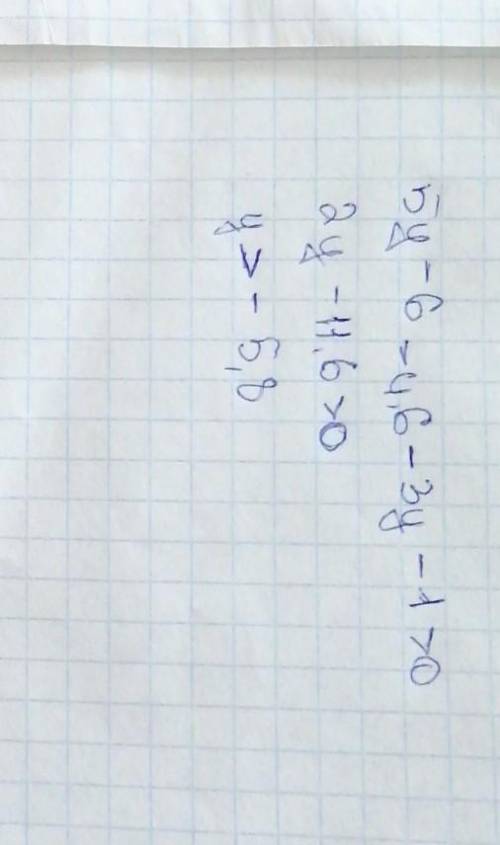 5y - 6 - 4,6 - 3y - 1 > 0
2y - 11,6 > 0
y > - 5,8